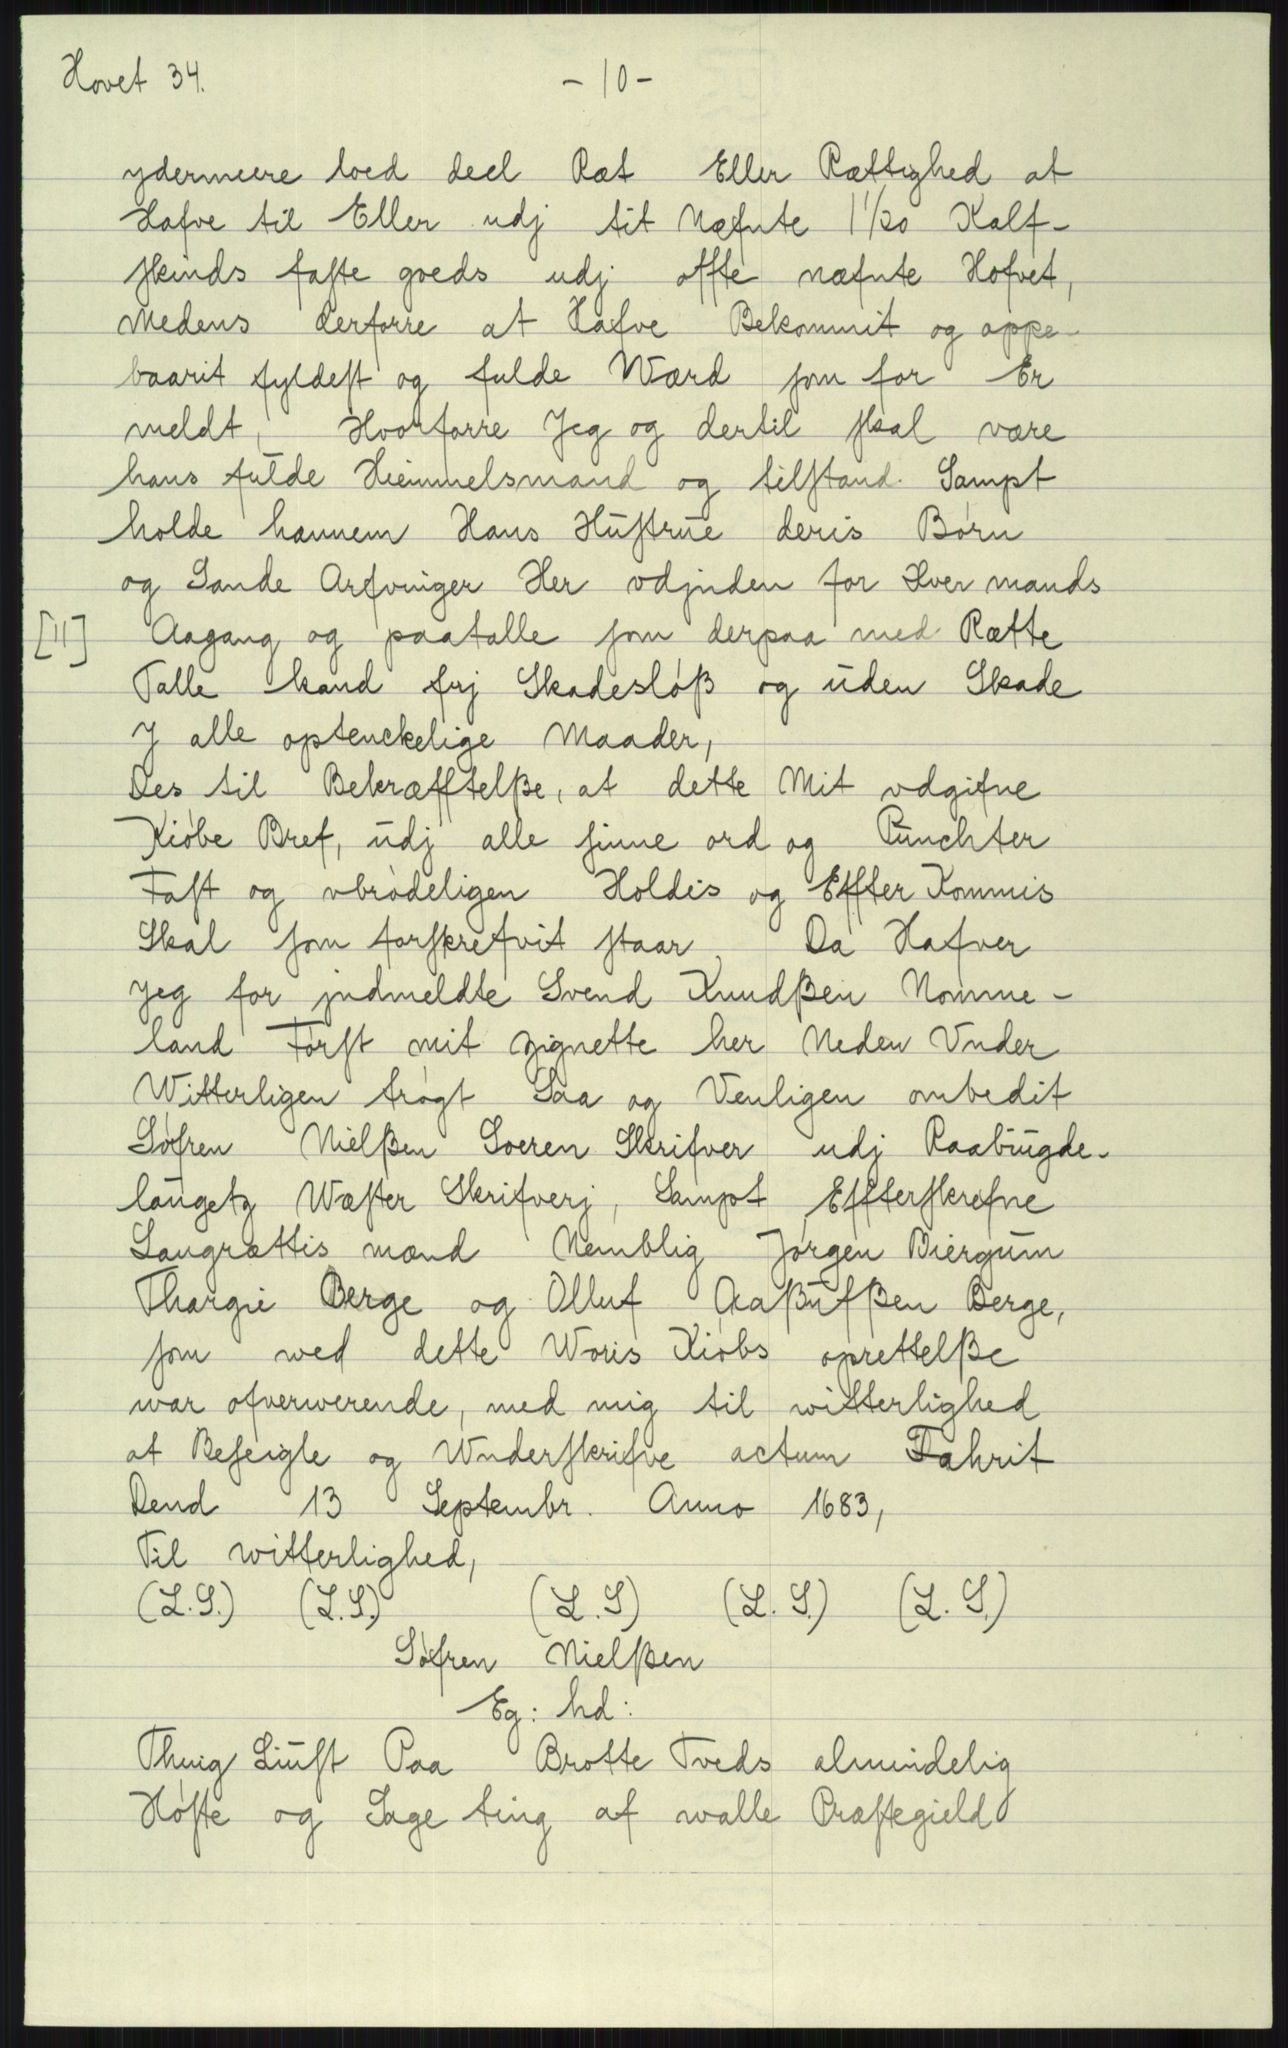 Hovet 34.
- 10 -
ydermeere loed deel Ræt Eller Rættighed at
Hafve til Eller udj tit Næfnte 1 1/20 Kalf-
skinds faste goeds udj offte næfnte Hofvet,
Medens derforre at Hafve Bekommit og oppe-
baarit fyldest og fulde Wærd som for Er
meldt, Hvorforre Jeg og dertil skal være
hans fulde Hiemmelsmand og tilstand. Sampt
holde hannem Hans Hustrue deris Børn
og Sande Arfvinger Her vdjnden for Hver mands
[11] Aagang og paatalle som derpaa med Rætte
Talle kand frj Skadesløß og uden Skade
J alle optenckelige Maader,
Des til Bekræfftelße, at dette Mit vdgifne
Kiøbe Bref, udj alle sinne ord og Punchter
Fast og vbrødeligen Holdis og Effter Kommis
Skal som forskrefvit staar, Da Hafver
Jeg for jndmeldte Svend Knudßen Nomme-
land Først mit zignette her Neden Vnder
Witterligen trøgt Saa og Venligen ombedit
Søfren Nielßen Soeren Skrifver udj Raabiugde-
laugetz Wæster Skrifverj, Sampt Effterskrefne
Laugrættis mænd Nemblig Jørgen Biergum
Thargie Berge og Olluf Aaßufßen Berge,
som wed dette Woris Kiøbs oprettelße
war ofverwerende, med mig til witterlighed
at Beseigle og Wnderskrifve actum Fahrit
Dend 13 Septembr. Anno 1683,
Til witterlighed,
(L.S.) (L.S.) (L.S) (L.S.) (L.S.)
Søfren Nielßen
Eg: hd:
Thuig Liust Paa Brotte Tveds almindelig
Høste og Sage ting af walle Præstegield